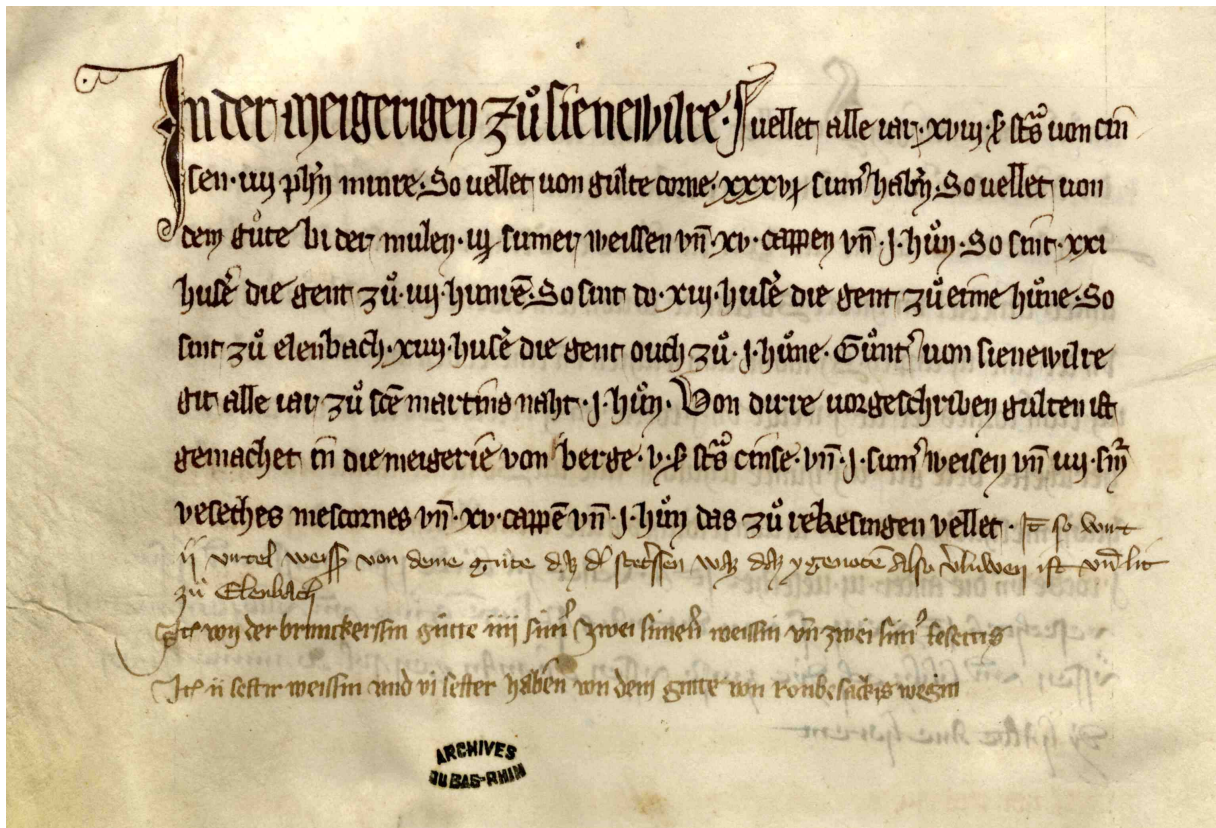 In der meigerigen zů sienewilre · So vellet alle iar · xviij · lb strasb̄ von cin
sen · iiij phn̄ minre · So vellet von gülte corne · xxxvj sum̄ habn̄ · So vellet von
dem gůte bi der mulen · iij sumer weissen vn̄ · xv · cappen vn̄ · j · hůn · So sint · xxi
husē die gent zů · iiij · hunrē · So sint do · xiij · husē die gent zů eime hůne · So
sint zů elenbach · xiiij · husē die gent ouch zů · j · hůne · Gůnt' von sienewilre
git alle iar zů scē martins naht · j · hůn · Von dirre vorgeschriben gülten ist
gemachet in die meigeriē von berge · v · lb strasb̄ cinse · vn̄ · j · sum' weisen vn̄ iiij · sm̄
veseches mescornes vn̄ · xv · cappē vn̄ · j · hůn das zů rekesingen vellet · It so wirt
ij virtel weiss von deme gůte dz d' waz dz also v'luwen ist vn̄ lit
zů Elenbach
Itē von der brunckerssin gůtte iiij sim' zwei simern weissin vn̄ zwei sim' fesettis
Itē ii sester weissin vnd vi sester haben von dem gutte von wegin
ARCHIVES
DU BAS-RHIN